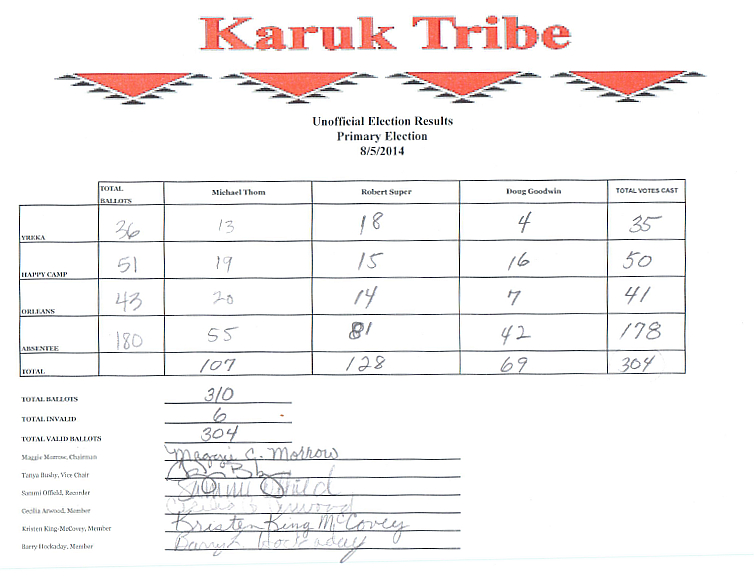 Karuk Tribe
Unofficial Election Results
Primary Election
8/5/2014
TOTAL BALLOTS Michael Thom Robert Super Doug Goodwin TOTAL VOTES CAST
YREKA 36 13 18 4 35
HAPPY CAMP 51 19 15 16 50
ORLEANS 43 20 14 7 41
ABSENTEE 180 55 81 42 178
TOTAL 107 128 69 304
TOTAL BALLOTS 310
TOTAL INVALID 6
TOTAL VALID BALLOTS 304
Maggie Murrow, Chairman Morrow
Tanya Busby, Vice Chair
Sammi Offield, Recorder
Cecilia Arwood, Member
Kristen King-McCovey, Member Kristen King McCovey
Barry Hockaday, Member Hockaday